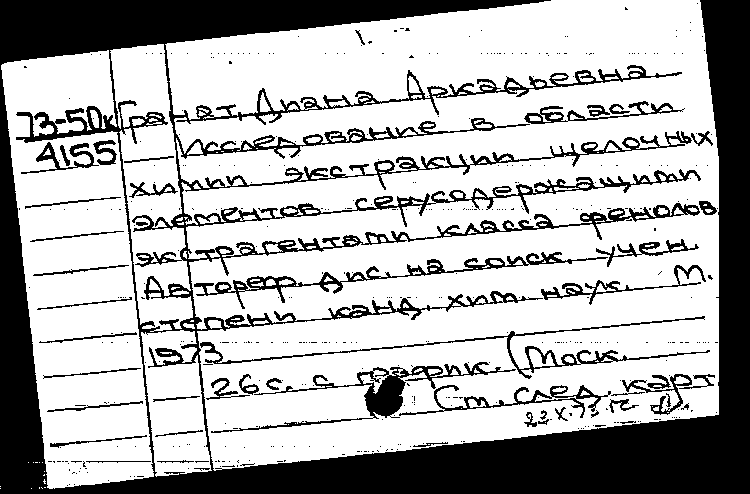 1.
73-50к Гранат, Диана Аркадьевна.
4155 Исследование в области
химии экстракции щелочных
элементов серусодержащими
экстрагентами класса фенолов.
Автореф. дис. на соиск. учен.
степени канд. хим. наук. М.
1973.
26 с. с график. (Моск.
См. след. карт.
22.X.73 г.